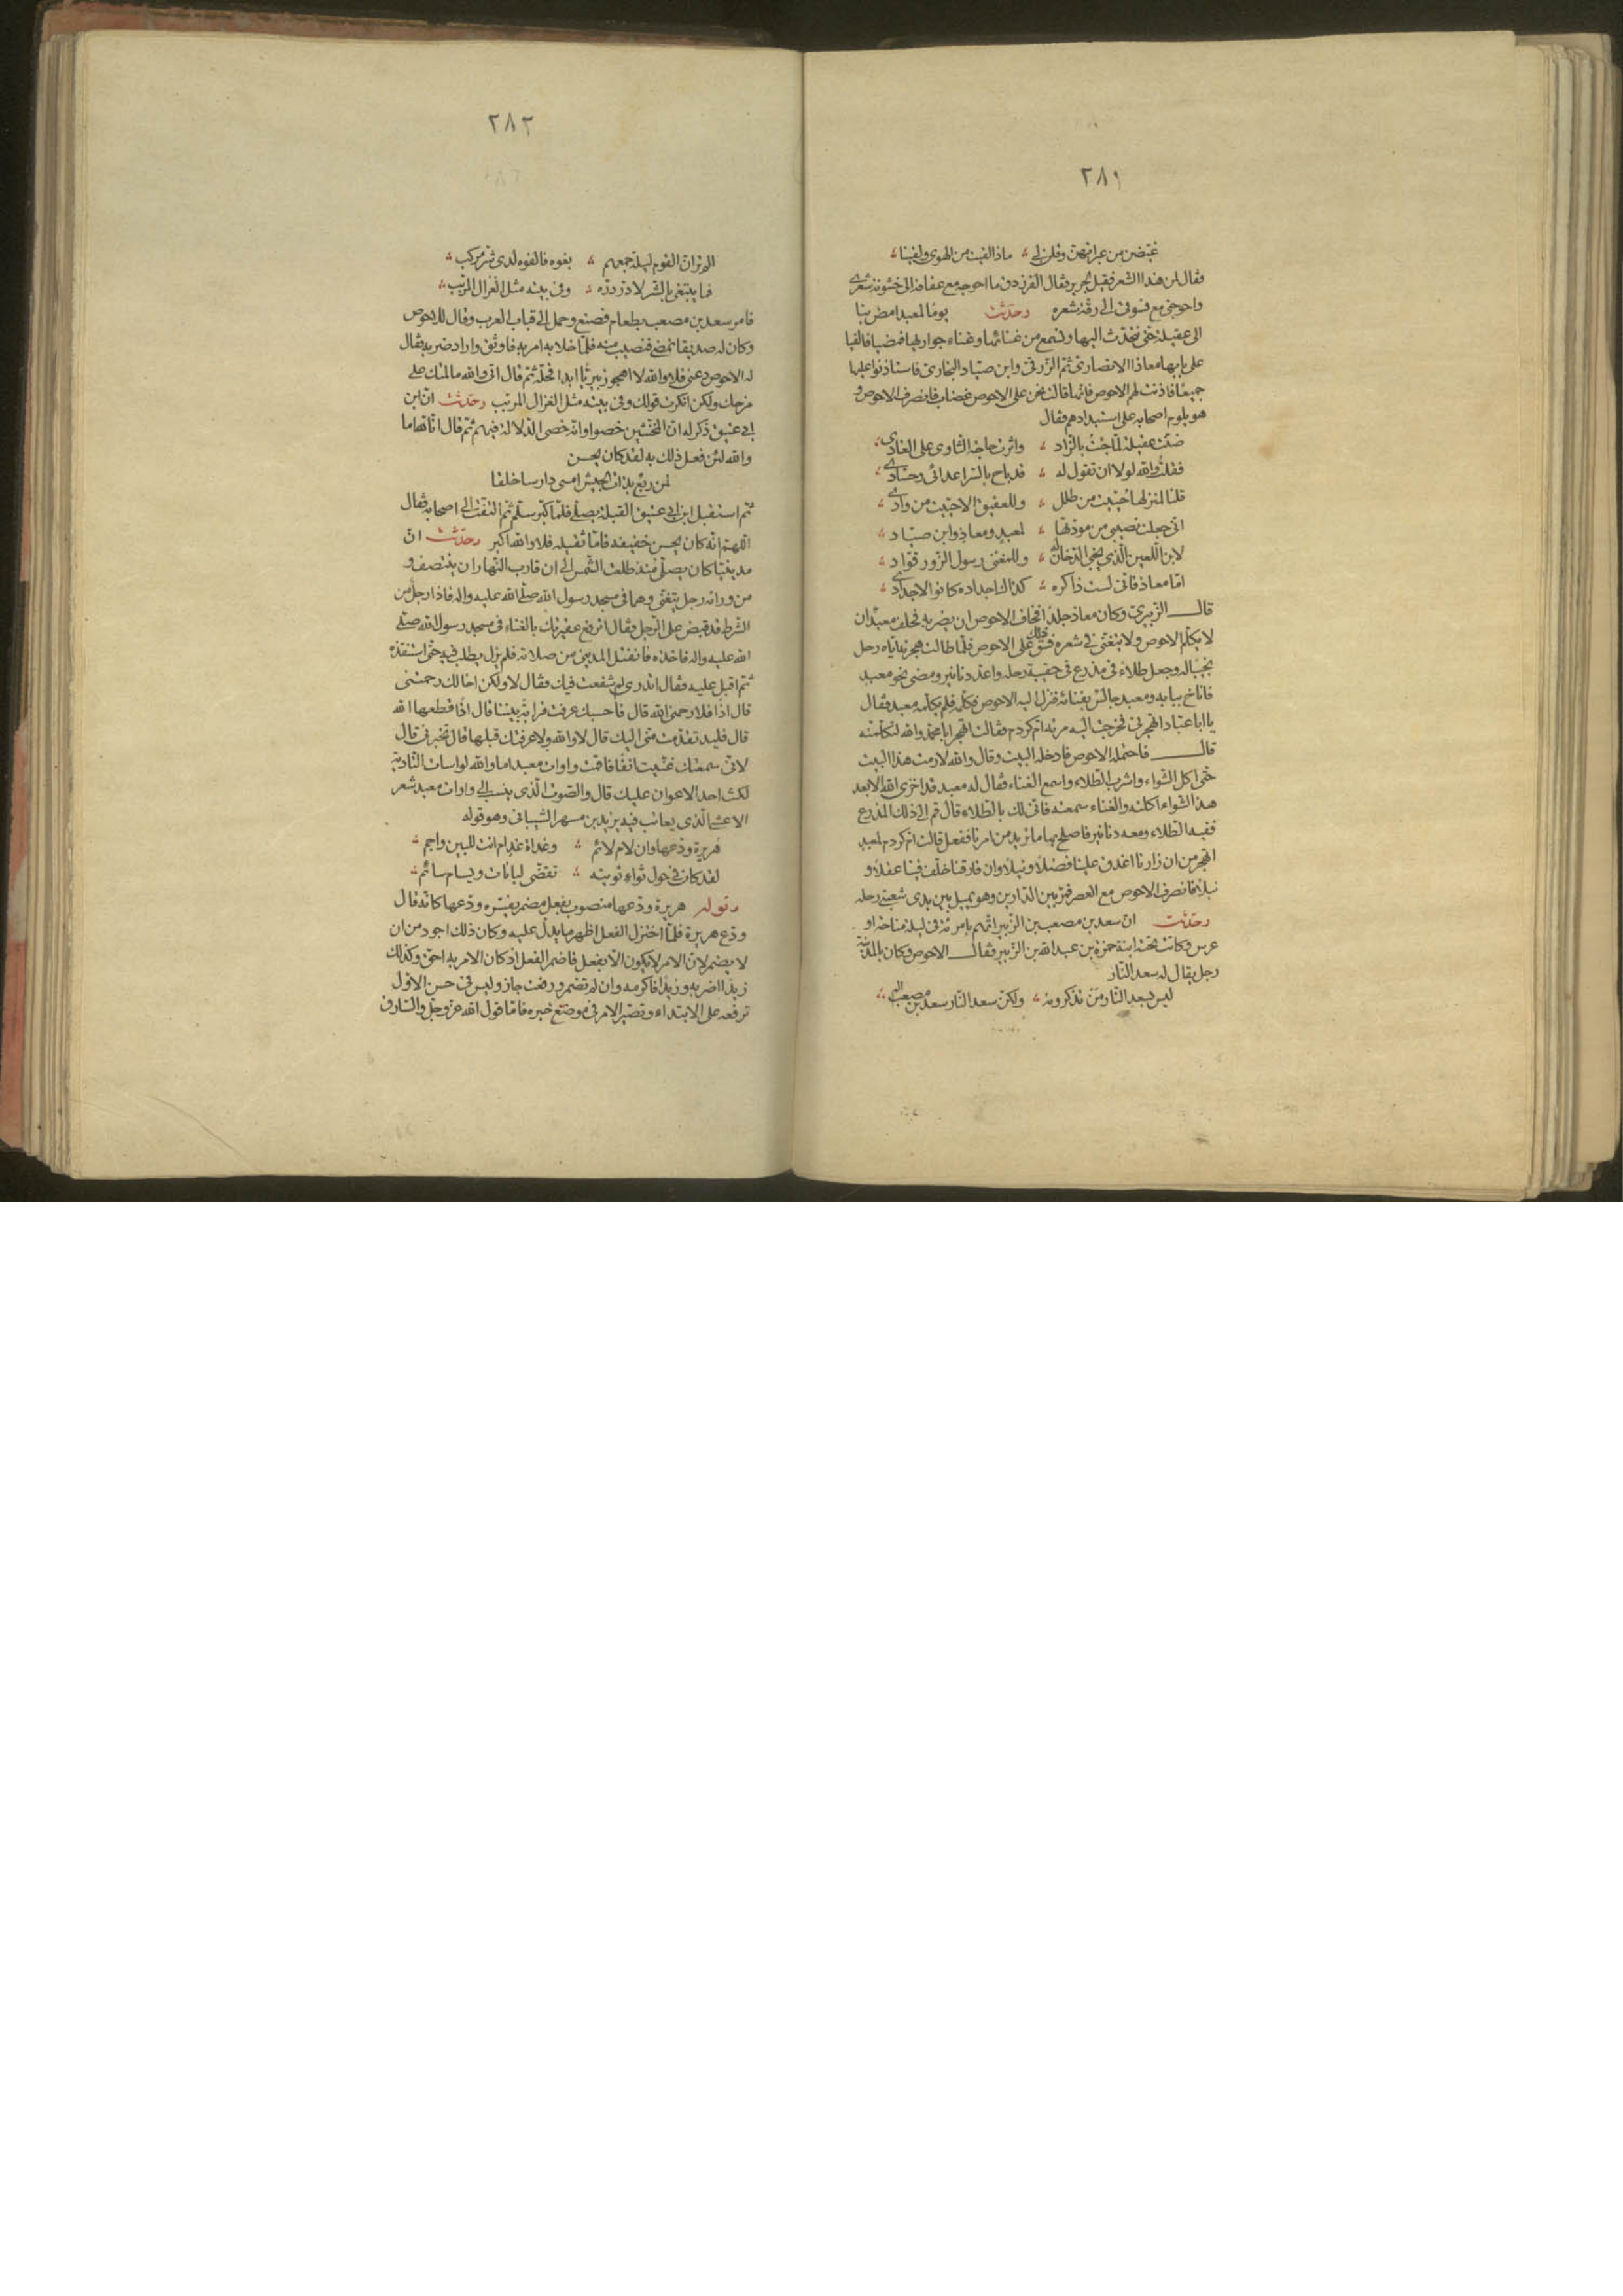 ٢٨١
غيّضن من عبراتهن وقلن لي ؞ ماذا لقيت من الهوى ولقينا ؞
فقال لمن هذا الشعر فقيل لجرير فقال الفرزدق ما احوجه مع عفافه الى خشونة شعري
واحوجني مع فسوقي الى رقة شعره وحدّثت يوما لمعبد امض بنا
الى عقيلة حتى نتحدث اليها ونسمع من غنائها وغناء جواريها فمضيا فالفيا
على بابها معاذا الانصاري ثم الزرقي وابن صيّاد النجاري فاستاذنوا عليها
جميعا فاذنت لهم الا الاحوص فانها قالت نحن على الاحوص غضاب فانصرف الاحوص و
هو يلوم اصحابه على استبدادهم فقال
ضنّت عقيلة لمّا جئت بالزاد ؞ واثرت حاجة الثاوي على الغادي ؞
فقلت والله لولا ان تقول له ؞ قد باح بالسر اعدائي وحسّادي ؞
قلنا لمنزلها حُيّيت من طلل ؞ وللعقيق الا حيّيت من وادي ؞
اني جعلت نصيبي من مودتها ؞ لمعبد ومعاذ وابن صيّاد ؞
لابن اللعين الذي يخبى الدخان له ؞ وللمغني رسول الزور قوّاد ؞
امّا معاذ فاني لست ذاكره ؞ كذاك اجداده كانوا لاجدادي ؞
قال الزبيري وكان معاذ جلدا فخاف الاحوص ان يضربه فحلف معبد ان
لا يكلم الاحوص ولا يتغنى في شعره فشق ذلك على الاحوص فلمّا طالت هجرته اياه رحل
نجيبا له وجعل طلاء في مذرع في حقيبة رحله واعد دنانير ومضى نحو معبد
فاناخ ببابه ومعبد جالس بفنائه فنزل اليه الاحوص فكلمه فلم يكلمه معبد فقال
يا ابا عبّاد اتهجرني فخرجت اليه مرته ام كردم فقالت اتهجر ابا محمد والله لتكلّمنه
قال فاحتمله الاحوص فادخله البيت وقال والله لا رمت هذا البيت
حتى اكل الشواء واشرب الطلاء واسمع الغناء فقال له معبد قد اخزى الله الابعد
هذا الشواء اكلته والغناء سمعته فانى لك بالطلاء قال قم الى ذلك المذرع
ففيه الطلاء ومعه دنانير فاصلح بها ما نريد من امرنا ففعل قالت ام كردم لمعبد
اتهجر من ان زارنا اغدق علينا فضلا ونيلا وان فارقنا خلّف فينا عقلا و
نبلا فانصرف الاحوص مع العصر فمر بين الدارين وهو يميل بين يدي شعبتي رحله
وحدّثت ان سعد بن مصعب بن الزبير اتهم بامرءة في ليلة مناحة او
عرس وكانت تحته ابنة حمزة بن عبد الله بن الزبير فقال الاحوص وكان بالمدينة
رجل يقال له سعد النار
ليس بسعد النار من تذكرونه ؞ ولكن سعد النار سعد بن مصعب ؞
٢٨٢
الم تر ان القوم ليلة جمعهم ؞ بغوه فالفوه لدى شر مركب ؞
فما يبتغي بالشر لا در دره ؞ وفي بيته مثل الغزال المربّب ؞
فامر سعد بن مصعب بطعام فصنع وحمل الى قباب العرب وقال للاحوص
وكان له صديقا نمضي فنصيب منه فلمّا خلا به امر به فاوثق واراد ضربه فقال
له الاحوص دعني فلا والله لا اهجو زبيريا ابدا فحلّه ثم قال اني والله ما لمتك على
مزحك ولكن انكرت قولك وفي بيته مثل الغزال المربّب وحدّثت ان ابن
ابي عتيق ذكر له ان المخنثين خصوا وانه خصي الدلال فيهم ثم قال انا لله اما
والله لئن فعل ذلك به لقد كان يحسن
لمن ربع بذات الجيش امسى دارسا خلقا
ثم استقبل ابن ابي عتيق القبلة يصلي فلمّا كبّر سلّم ثم التفت الى اصحابه فقال
اللهم انه كان يحسن خفيفه فامّا ثقيله فلا والله اكبر وحدّثت ان
مدينيا كان يصلي منذ طلعت الشمس الى ان قارب النهار ان ينتصف و
من ورائه رجل يتغنى وهما في مسجد رسول الله صلى الله عليه واله فاذا رجل من
الشرط قد قبض على الرجل فقال اترفع عقيرتك بالغناء في مسجد رسول الله صلى
الله عليه واله فاخذه فانفتل المديني من صلاته فلم يزل يطلب فيه حتى استنقذه
ثم اقبل عليه فقال اتدري لم شفعت فيك فقال لا ولكن اخالك رحمتني
قال اذا فلا رحمني الله قال فاحسبك عرفت قرابة بيننا قال اذا فقطعها الله
قال فليد تقدمت مني اليك قال لا والله ولا عرفتك قبلها قال فخبرني قال
لاني سمعتك غنّيت انفا فاقمت واوات معبد اما والله لو اسات التادية
لكنت احد الاعوان عليك قال والصوت الذي ينسب الى واوات معبد شعر
الاعشى الذي يعاتب فيه يزيد بن مسهر الشيباني وهو قوله
هُريرة ودّعها وان لام لائم ؞ وغداة غد ام انت للبين واجم ؞
لقد كان في حول ثواء ثويته ؞ تقضّي لبانات ويسام سائم ؞
وقوله هريرة ودّعها منصوب بفعل مضمر يفسّره ودّعها كانه قال
ودّع هريرة فلمّا اختزل الفعل اظهر ما يدل عليه وكان ذلك اجود من ان
لا يضمر لان الامر لا يكون الا بفعل فاضمر الفعل اذ كان الامر به احق وكذلك
زيدا اضربه وزيدا فاكرمه وان لم تضمر ورفعت جاز وليس في حسن الاول
ترفعه على الابتداء وتصيّر الامر في موضع خبره فامّا قول الله عز وجل والسارق